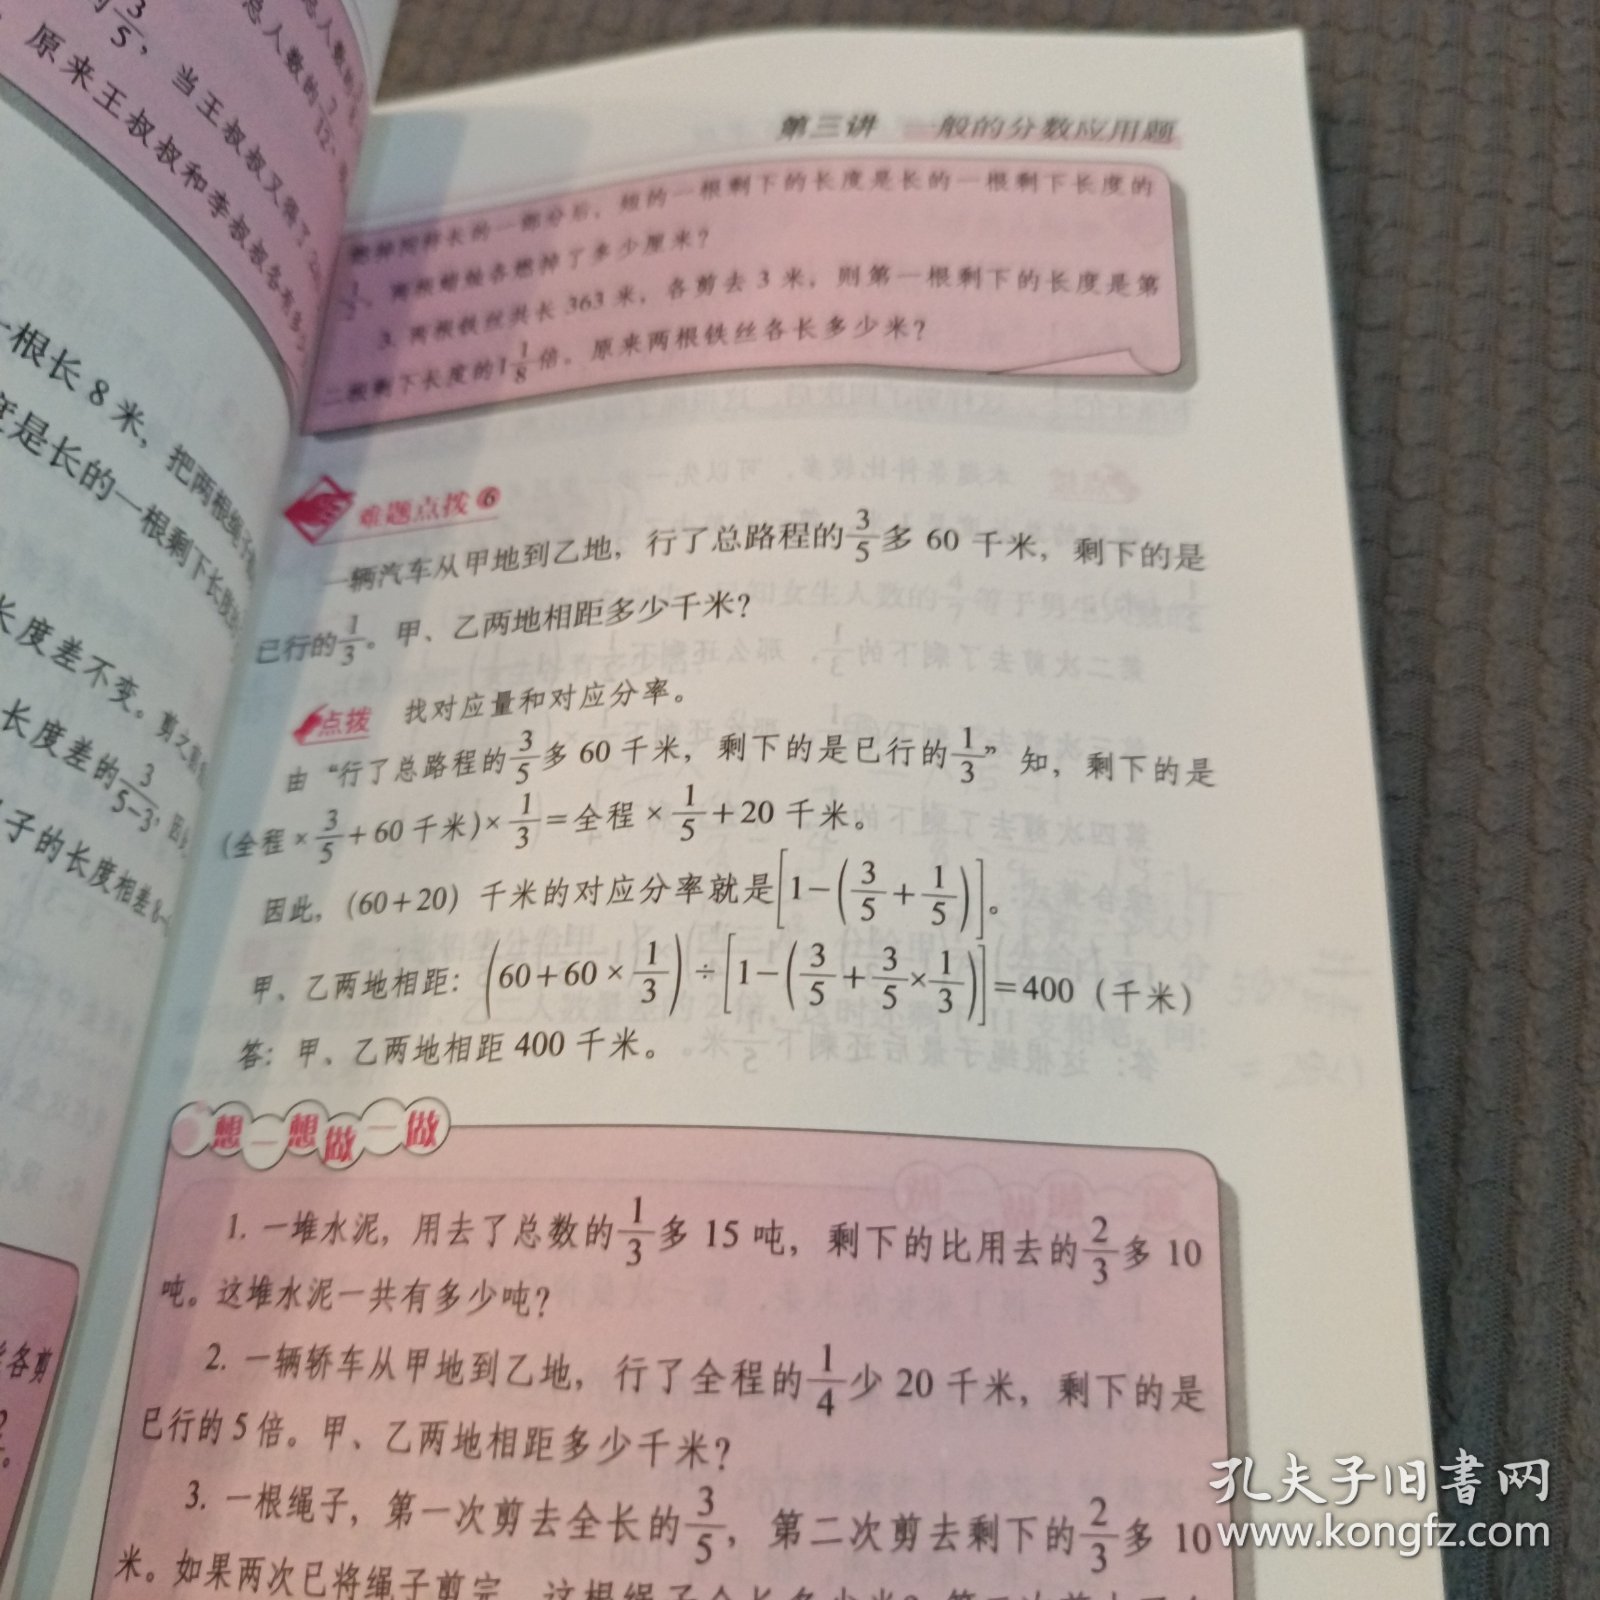 第三讲 一般的分数应用题
把掉同样长的一部分后，短的一根剩下的长度是长的一根剩下长度的
两根蜡烛各燃掉了多少厘米？
3. 两根铁丝共长 363 米，各剪去 3 米，则第一根剩下的长度是第
二根剩下长度的1 1/8 倍。原来两根铁丝各长多少米？
难题点拨 6
一辆汽车从甲地到乙地，行了总路程的 3/5 多 60 千米，剩下的是
已行的 1/3。甲、乙两地相距多少千米？
点拨 找对应量和对应分率。
由“行了总路程的 3/5 多 60 千米，剩下的是已行的 1/3”知，剩下的是
(全程 × 3/5 + 60 千米) × 1/3 = 全程 × 1/5 + 20 千米。
因此，(60+20) 千米的对应分率就是[1-(3/5+1/5)]。
甲、乙两地相距：(60+60×1/3)÷[1-(3/5+3/5×1/3)]=400（千米）
答：甲、乙两地相距 400 千米。
想一想做一做
1. 一堆水泥，用去了总数的 1/3 多 15 吨，剩下的比用去的 2/3 多 10
吨。这堆水泥一共有多少吨？
2. 一辆轿车从甲地到乙地，行了全程的 1/4 少 20 千米，剩下的是
已行的 5 倍。甲、乙两地相距多少千米？
3. 一根绳子，第一次剪去全长的 3/5，第二次剪去剩下的 2/3 多 10
米。如果两次已将绳子剪完，这根绳子全长多少米？
总人数的
3/5，当王叔叔又得了
原来王叔叔和李叔叔各有多少
一根长 8 米，把两根绳子
度是长的一根剩下长度
长度差不变。剪之
长度差的 3/(5-3)，因
子的长度相差 8-
各剪
孔夫子旧书网
www.kongfz.com